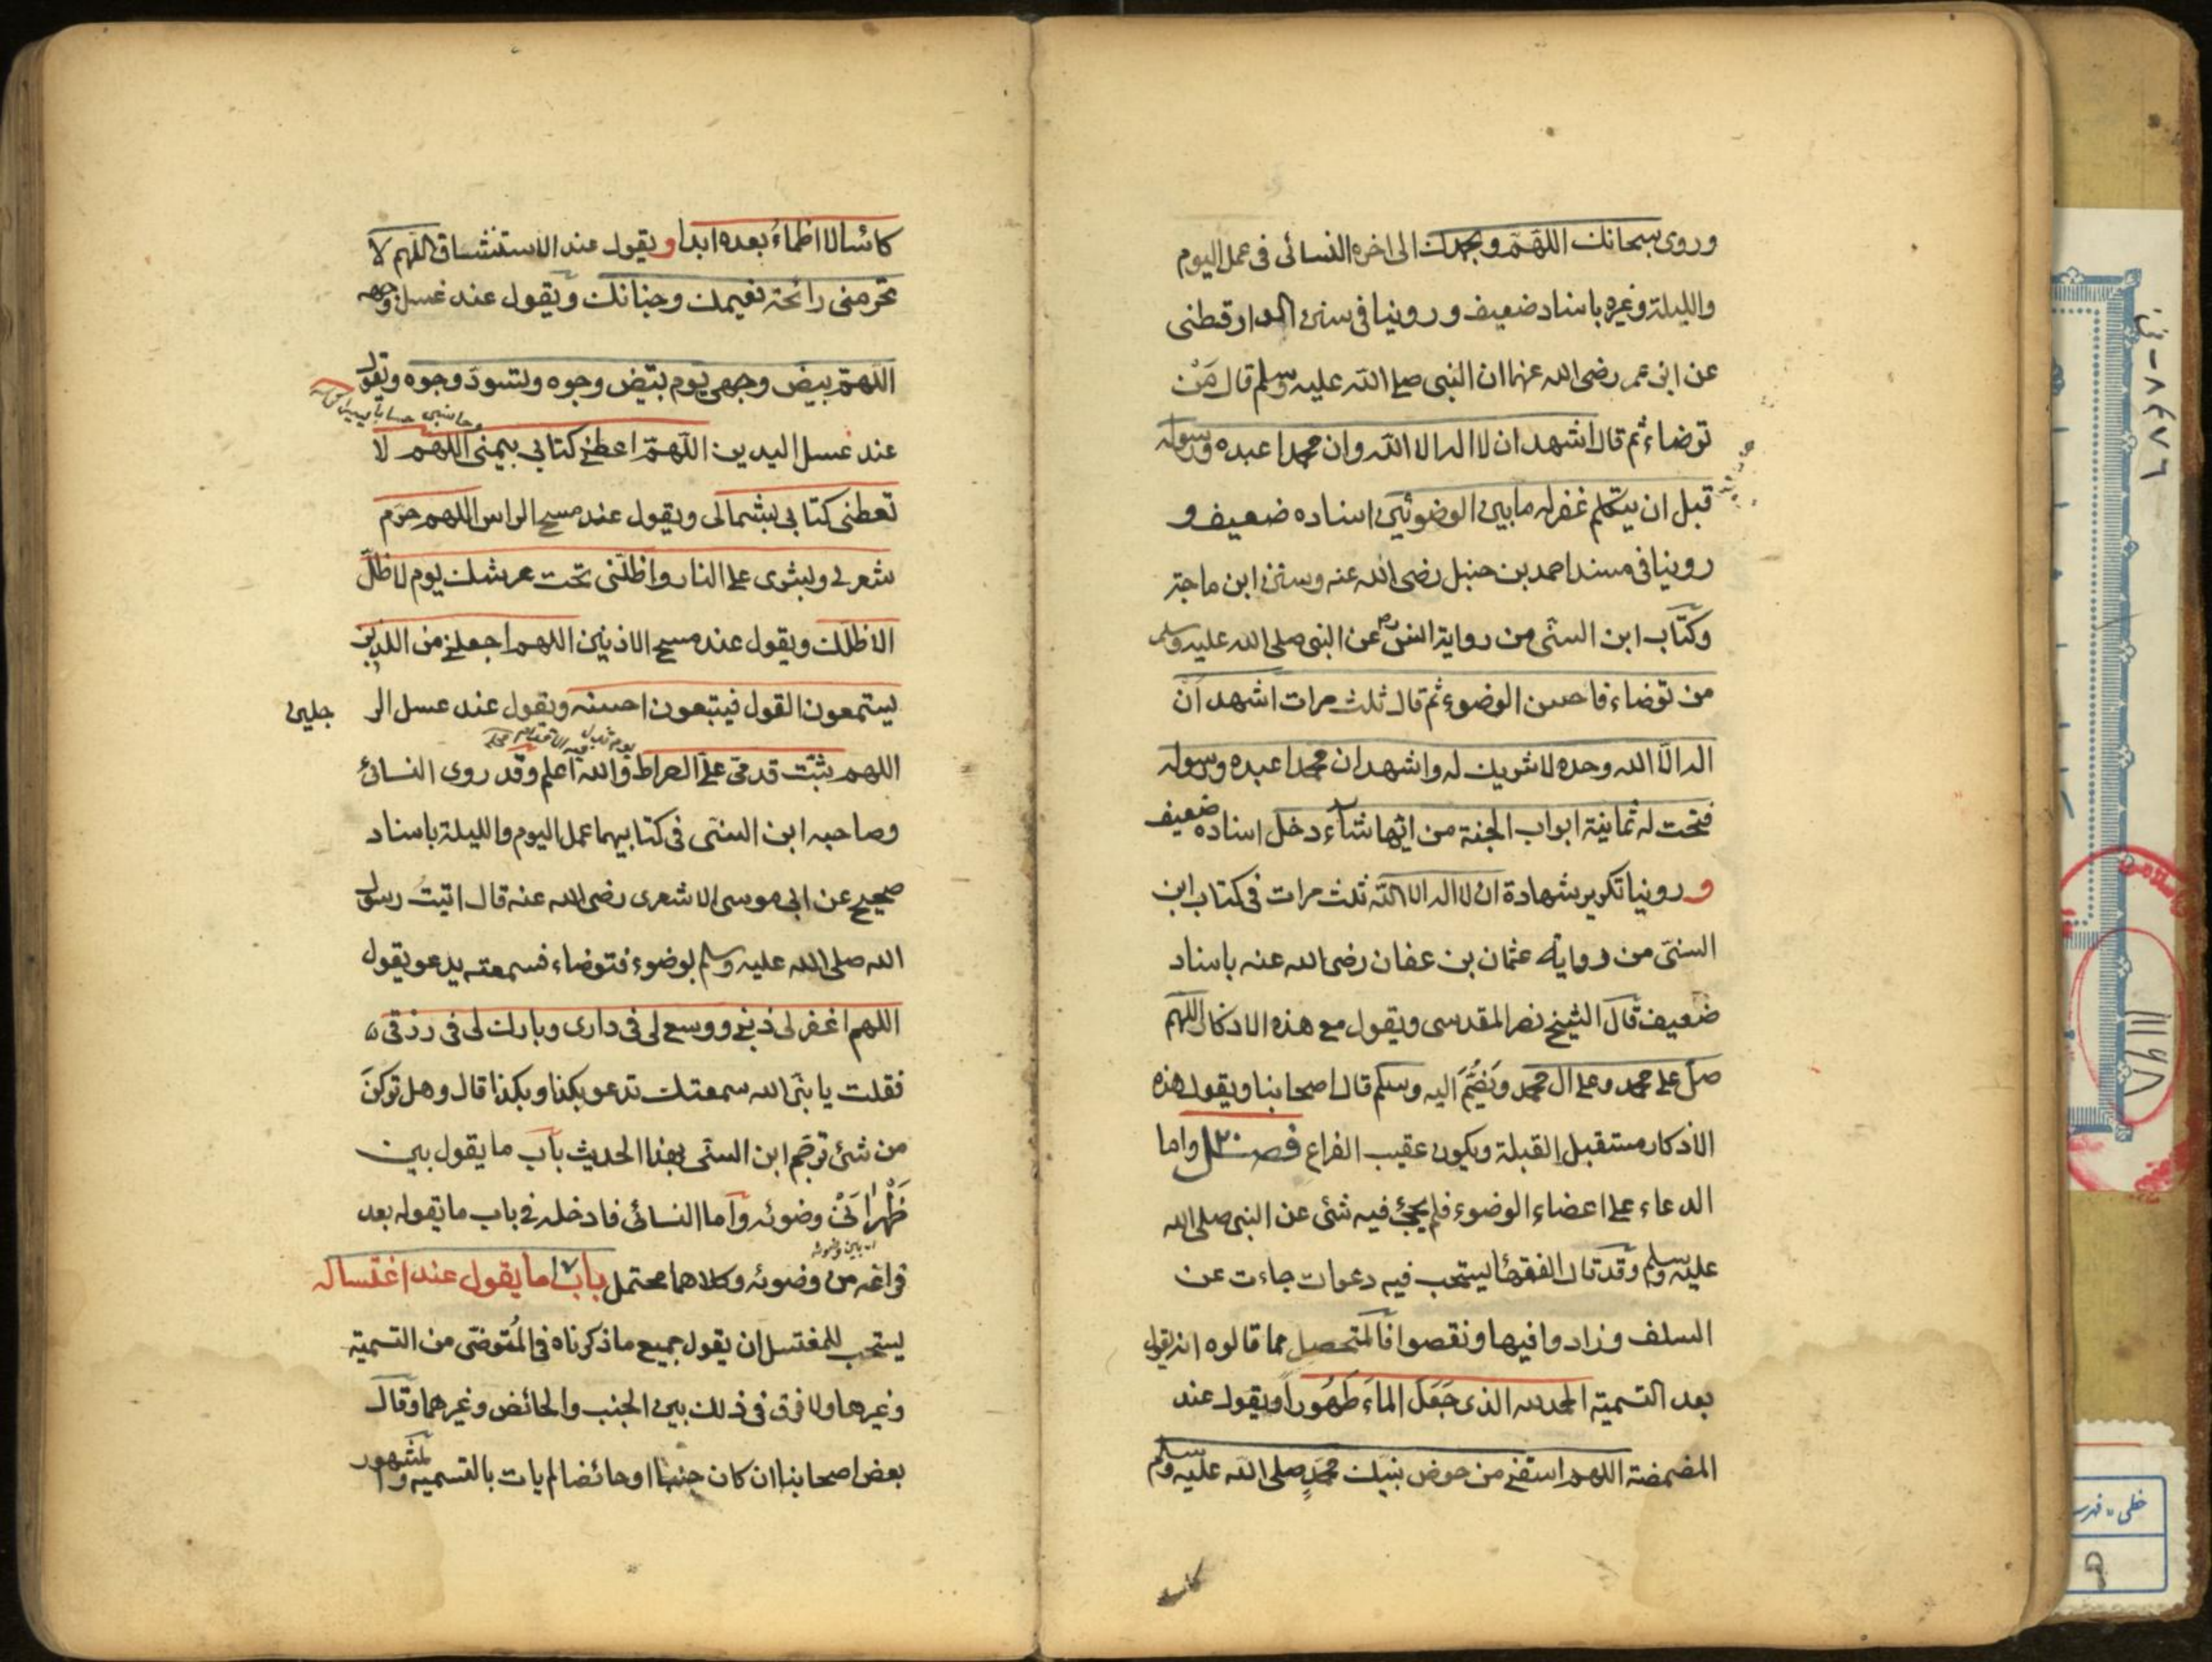 وروى سبحانك اللهمّ وبحمدك الى اخره النسائى فى عمل اليوم
والليلة وغيره باسناد ضعيف وروينا فى سنن الدارقطنى
عن ابن عمر رضى الله عنهما ان النبى صلى الله عليه وسلم قال مَنْ
توضاء ثم قال اشهد ان لا اله الا الله وان محمدا عبده ورسوله
قبل ان يتكلم غفر له ما بين الوضوئين اسناده ضعيف و
روينا فى مسند احمد بن حنبل رضى الله عنه وسنن ابن ماجة
وكتاب ابن السنّى من رواية انس رض عن النبى صلى الله عليه وسلم
من توضاء فاحسن الوضوء ثم قال ثلث مرات اشهد ان
اله الّا الله وحده لا شريك له واشهد ان محمدا عبده ورسوله
فتحت له ثمانية ابواب الجنة من ايّها شاء دخل اسناده ضعيف
و روينا تكرير شهادة ان لا اله الا الله ثلث مرات فى كتاب ابن
السنى من رواية عثمان بن عفان رضى الله عنه باسناد
ضعيف قال الشيخ نصر المقدسى ويقول مع هذه الاذكار اللهم
صل على محمد وعلى ال محمد ويَضُمُّ اليه وسلم قال اصحابنا ويقول هذه
الاذكار مستقبل القبلة ويكون عقيب الفراغ فصل واما
الدعاء على اعضاء الوضوء فلم يجئ فيه شئ عن النبى صلى الله
عليه وسلم وقد قال الفقهاء يستحب فيه دعوات جاءت عن
السلف وزادوا فيها ونقصوا فالمتحصل مما قالوه انه يقول
بعد التسمية الحمد لله الذى جَعَلَ الماءَ طَهُوراً ويقول عند
المضمضة اللهم اسقنى من حوض نبيك محمدٍ صلى الله عليه وسلم
كاسا
كاسًا لا اظماءُ بعده ابدا ويقول عند الاستنشاق اللهم لا
تحرمنى رائحة نعيمك وجنانك ويقول عند غسل وجهه
اللهمّ بيض وجهى يوم تبيّض وجوه وتسودّ وجوه ويقول
وحاسبنى حسابا يسيرا
عند غسل اليدين اللهمّ اعطنى كتابى بيمينى اللهم لا
تعطنى كتابى بشمالى ويقول عند مسح الراس اللهم حرّم
شعرى وبشرى على النار واظلّنى تحت عرشك يوم لا ظلّ
الا ظلك ويقول عند مسح الاذنين اللهم اجعلنى من الذين
يستمعون القول فيتبعون احسنه ويقول عند غسل الر جلين
يوم تزل فيه الاقدام
اللهم ثبّت قدمىّ على الصراط والله اعلم وقد روى النسائى
وصاحبه ابن السنى فى كتابيهما عمل اليوم والليلة باسناد
صحيح عن ابى موسى الاشعرى رضى الله عنه قال اتيت رسول
الله صلى الله عليه وسلم بوضوء فتوضاء فسمعته يدعو يقول
اللهم اغفر لى ذنبى ووسع لى فى دارى وبارك لى فى رزقى
فقلت يا نبىّ الله سمعتك تدعو بكذا وبكذا قال وهل تركن
من شئ ترجم ابن السنّى بهذا الحديث باب ما يقول بين
ظَهْرانَىْ وضوئه وامّا النسائى فادخله فى باب ما يقوله بعد
اى بين وضوئه
فراغه من وضوئه وكلاهما محتمل باب ما يقول عند اغتساله
يستحب للمغتسل ان يقول جميع ما ذكرناه فى المُتوضّى من التسمية
وغيرها ولا فرق فى ذلك بين الجنب والحائض وغيرهما وقال
بعض اصحابنا ان كان جنبا او حائضا لم يات بالتسميه والمشهور